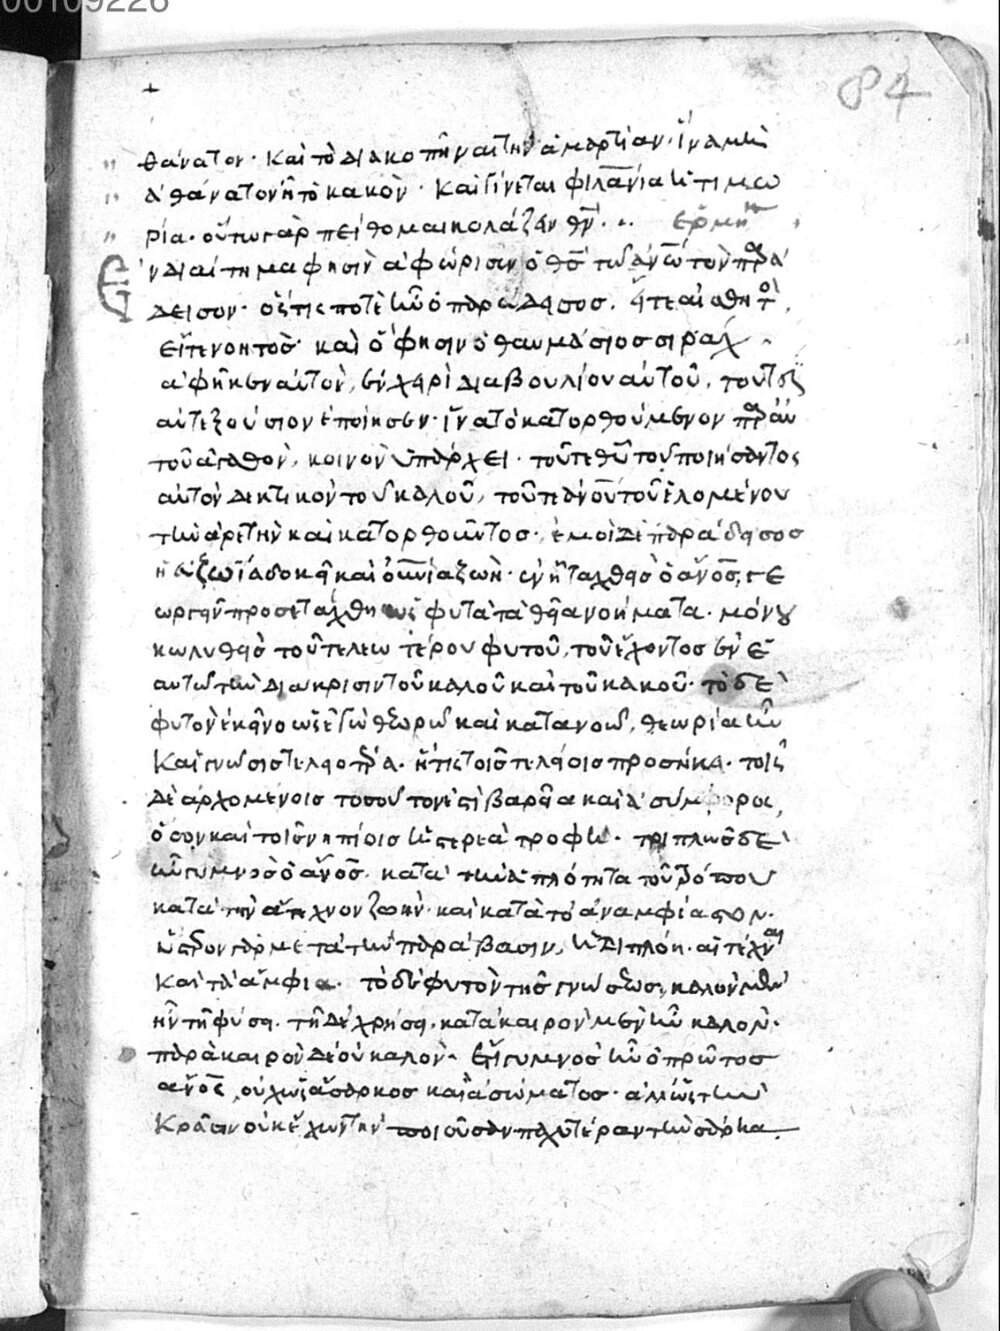 00109226
84
θάνατον· καὶ τὸ διακοπῆναι τὴν ἁμαρτίαν· ἵνα μὴ
ἀθάνατον ᾖ τὸ κακόν· καὶ γίνεται φιλανία ἡ τιμω
ρία· οὕτω γὰρ πείθομαι κολάζειν θν· ἑρμη
Ἐνδιαίτημα φησὶν ἀφώρισεν ὁ θς τῶ ανω τὸν παρά
δεισον· ὅστις ποτὲ ἦν ὁ παράδεισος, εἴτε αἰσθητός,
εἴτε νοητός· καὶ ὅ φησιν ὁ θαυμάσιος σιράχ
ἀφῆκεν αὐτὸν, ἐν χειρὶ διαβουλίου αὐτοῦ, τουτέστιν
αὐτεξούσιον ἐποίησεν· ἵνα τὸ κατορθούμενον παρ' αὐ
τοῦ ἀγαθὸν, κοινὸν ὑπάρχει· τοῦτε θῦ τοῦ ποιήσαντος
αὐτὸν δεκτικὸν τοῦ καλοῦ, τοῦτε ανου τοῦ ἑλομένου
τὴν ἀρετὴν καὶ κατορθοῦντος· ἐμοὶ δὲ παράδεισος
ἡ ἀεὶζωΐα δοκεῖ καὶ ἡ ουνία ζωή· ἐν ῇ ταχθεὶς ὁ ανος, γε
ωργεῖν προσετάχθη ὡς φυτὰ τὰ θεῖα νοήματα· μόνου
κωλυθεὶς τοῦ τελεωτέρου φυτοῦ, τοῦ ἔχοντος ἐν ἑ
αυτῶ τὴν διάκρισιν τοῦ καλοῦ καὶ τοῦ κακοῦ· τὸ δὲ
φυτὸν ἐκεῖνο ὡς ἐγὼ θεωρῶ καὶ κατανοῶ, θεωρία ἦν
καὶ γνῶσις τελεωτέρα· ἥτις τοῖς τελείοις προσήκει· τοῖς
δὲ ἀρχομένοις τοσοῦτον ἐστὶ βαρεῖα καὶ ἀσύμφορος,
ὅσον καὶ τοῖς νηπίοις ἡ στερεὰ τροφή· τριπλῶς δὲ
ἦν γυμνὸς ὁ ανος· κατὰ τὴν ἁπλότητα τοῦ τρόπου
κατὰ τὴν ἄτεχνον ζωήν· καὶ κατὰ τὸ ἀναμφίαστον·
ὕστερον γὰρ μετὰ τὴν παράβασιν, ἡ διπλόη· αἱ τέχναι
καὶ τὰ ἄμφια· τὸ δὲ φυτὸν τῆς γνώσεως, καλὸν μὲν
ἦν τῇ φύσει· τῇ δὲ χρήσει· κατὰ καιρὸν μὲν ἦν καλόν·
παρὰ καιρὸν δὲ οὐ καλόν· εἰ γυμνὸς ἦν ὁ πρῶτος
ανος, οὐχ ὡς ἄσαρκος καὶ ἀσώματος· ἀλλ' ὡς τὴν
κρᾶσιν οὐκ ἔχων τὴν ποιοῦσαν παχυτέραν τὴν σάρκα